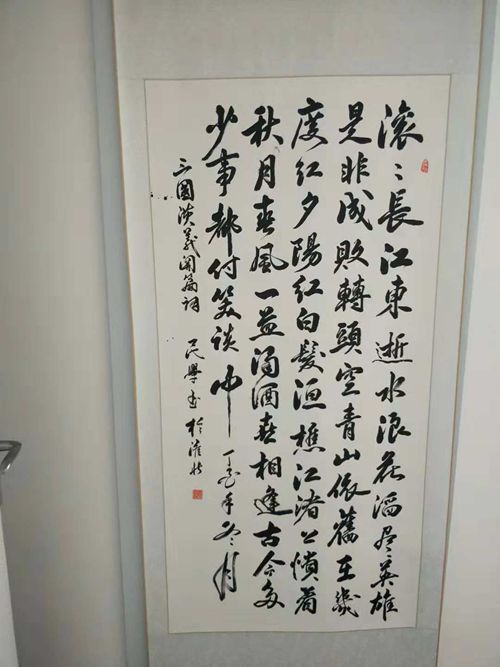 滚〻長江東逝水浪花滔尽英雄
是非成敗轉頭空青山依舊在幾
度红夕陽红白髮渔樵江渚上慣看
秋月春風一壶濁酒喜相逢古今多
少事都付笑谈中 丁亥年冬月
三國演義開篇词 民學書於淮